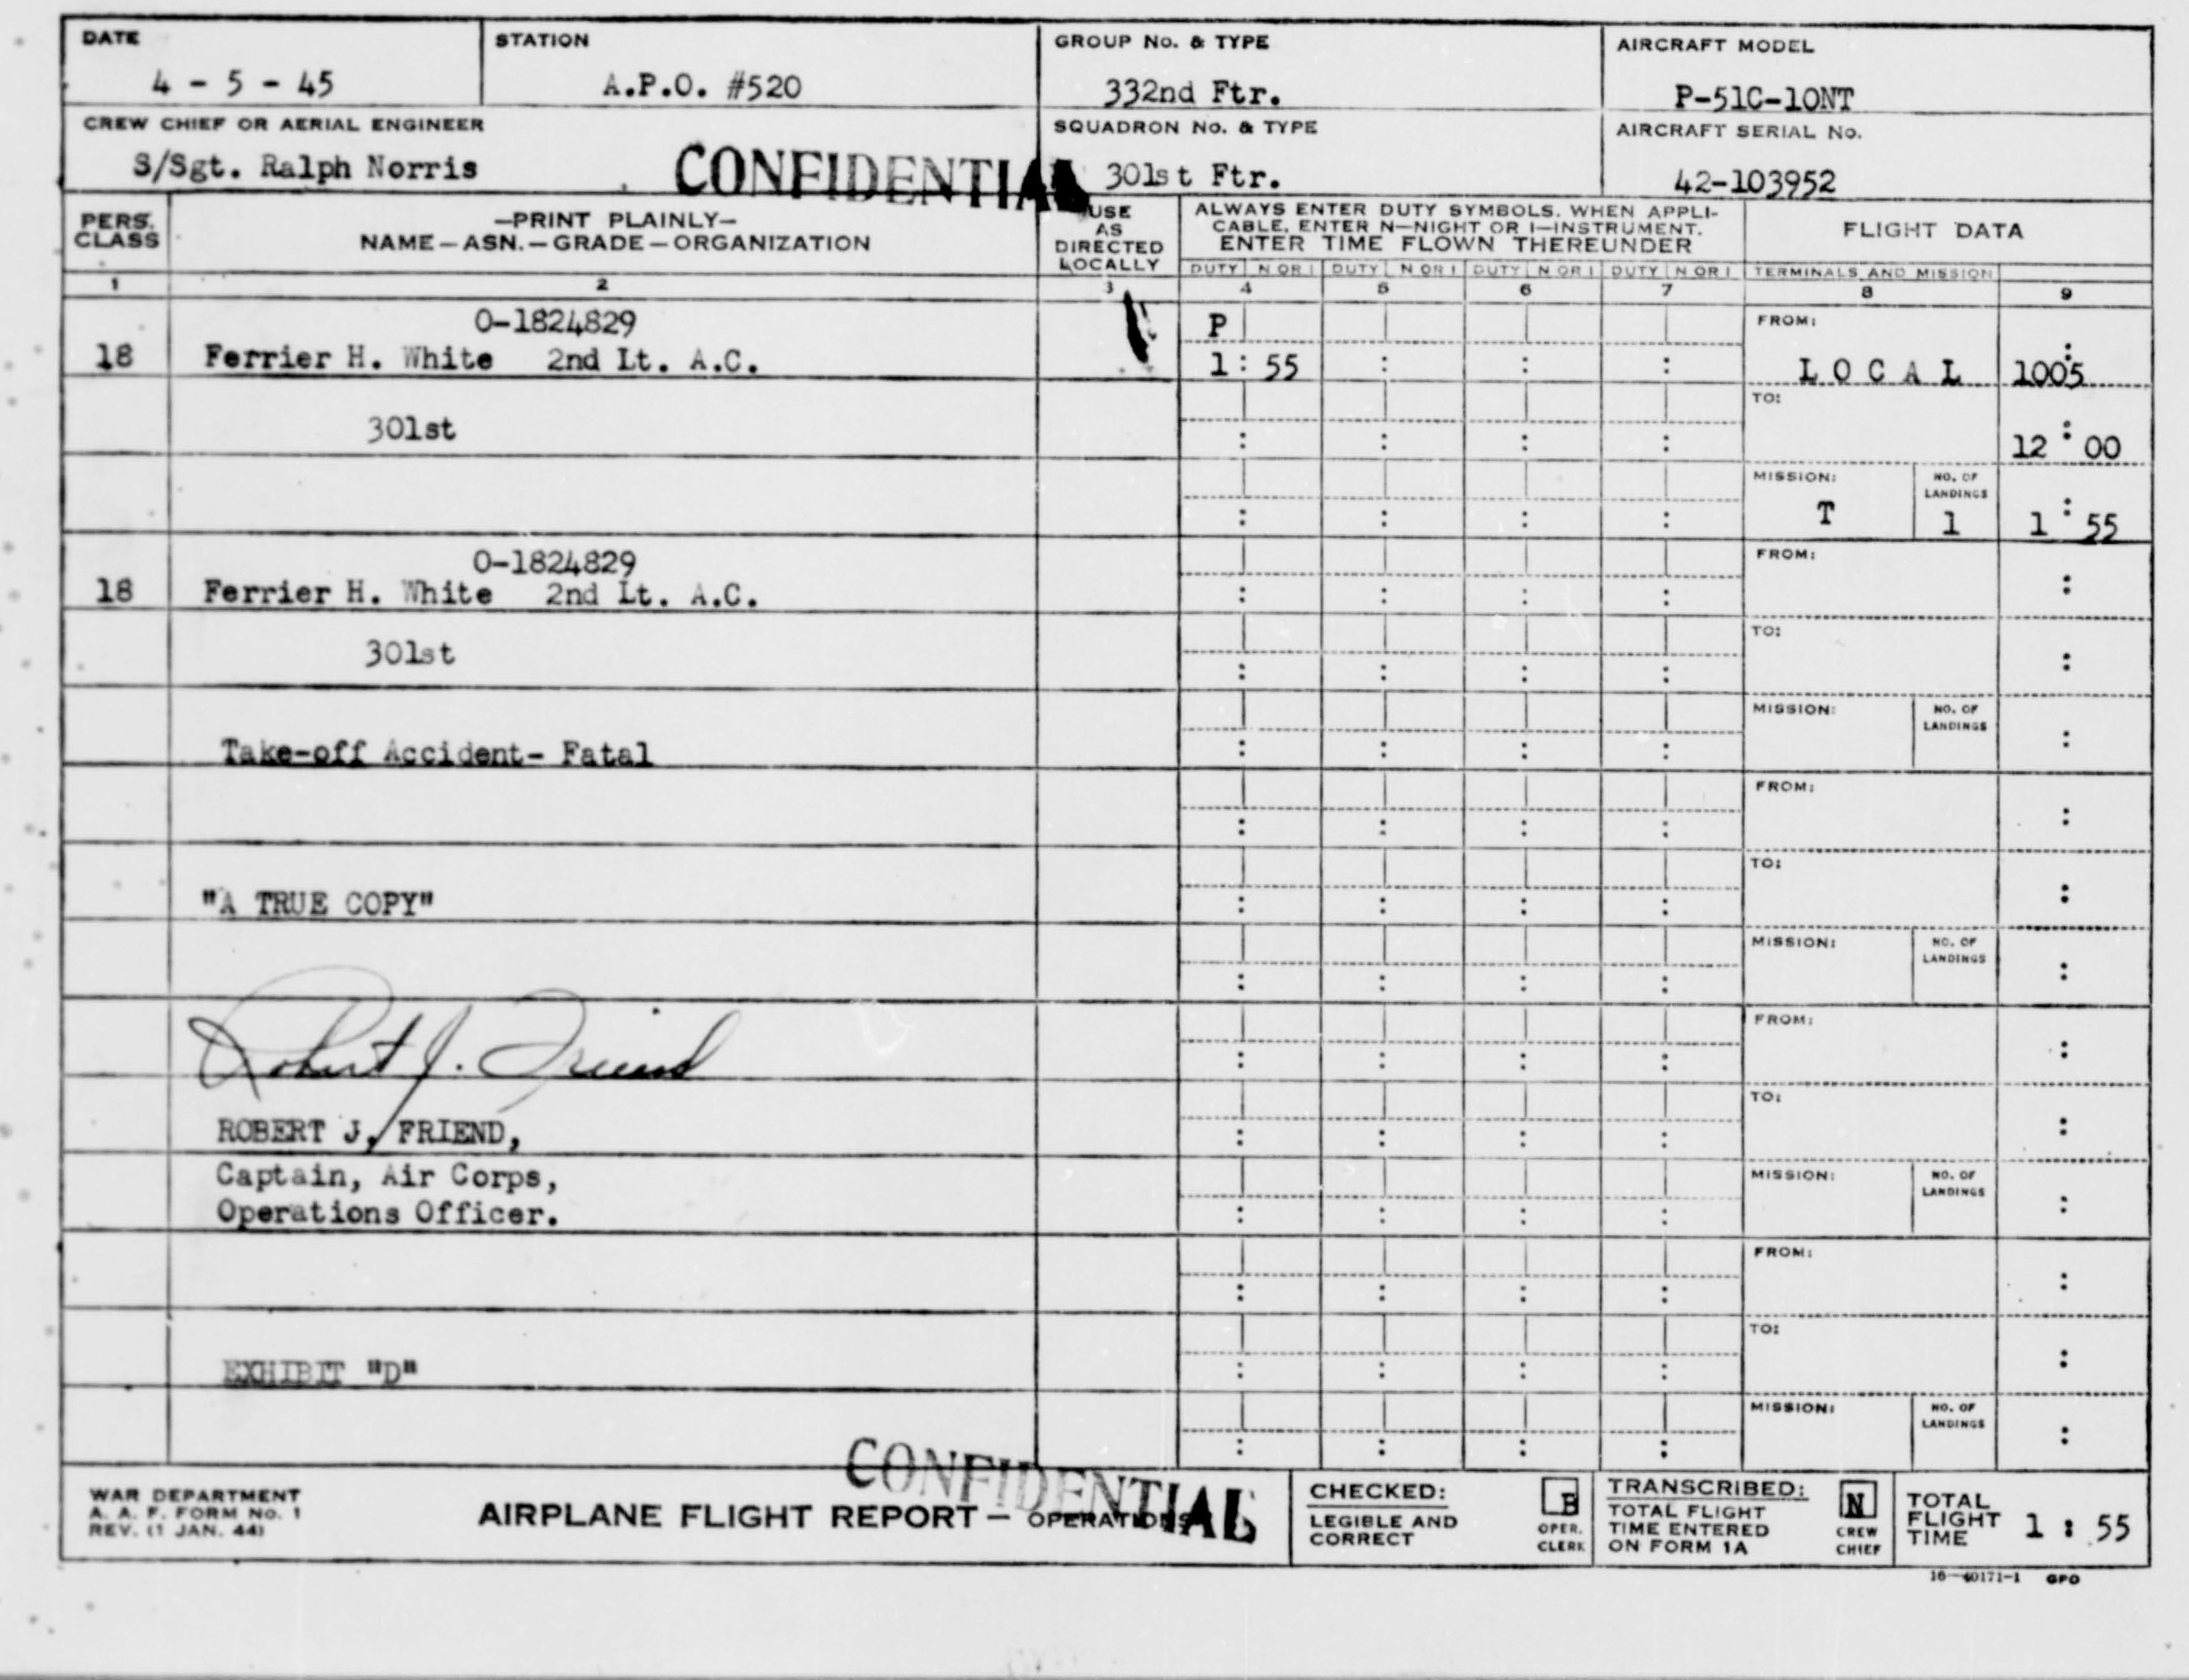 DATE
4 - 5 - 45
STATION
A.P.O. #520
GROUP No. & TYPE
332nd Ftr.
AIRCRAFT MODEL
P-51C-10NT
CREW CHIEF OR AERIAL ENGINEER
S/Sgt. Ralph Norris
CONFIDENTIAL
SQUADRON No. & TYPE
301st Ftr.
AIRCRAFT SERIAL No.
42-103952
PERS.
CLASS
—PRINT PLAINLY—
NAME—ASN.—GRADE—ORGANIZATION
USE
AS
DIRECTED
LOCALLY
ALWAYS ENTER DUTY SYMBOLS. WHEN APPLI-
CABLE, ENTER N—NIGHT OR I—INSTRUMENT.
ENTER TIME FLOWN THEREUNDER
FLIGHT DATA
DUTY N OR I DUTY N OR I DUTY N OR I DUTY N OR I TERMINALS AND MISSION
1 2 3 4 5 6 7 8 9
O-1824829
18 Ferrier H. White 2nd Lt. A.C.
P
1 : 55 : : :
FROM:
L O C A L 10:05
301st
: : : :
TO:
12 : 00
: : : :
MISSION:
T
NO. OF
LANDINGS
1
1 : 55
O-1824829
18 Ferrier H. White 2nd Lt. A.C.
: : : :
FROM:
:
301st
: : : :
TO:
:
Take-off Accident- Fatal
: : : :
MISSION:
NO. OF
LANDINGS
:
: : : :
FROM:
:
"A TRUE COPY"
: : : :
TO:
:
: : : :
MISSION:
NO. OF
LANDINGS
:
Robert J. Friend
: : : :
FROM:
:
ROBERT J. FRIEND,
: : : :
TO:
:
Captain, Air Corps,
Operations Officer.
: : : :
MISSION:
NO. OF
LANDINGS
:
: : : :
FROM:
:
EXHIBIT "D"
: : : :
TO:
:
: : : :
MISSION:
NO. OF
LANDINGS
:
CONFIDENTIAL
WAR DEPARTMENT
A. A. F. FORM No. 1
REV. (1 JAN. 44)
AIRPLANE FLIGHT REPORT — OPERATIONS
CHECKED:
LEGIBLE AND
CORRECT
B
OPER.
CLERK
TRANSCRIBED:
TOTAL FLIGHT
TIME ENTERED
ON FORM 1A
N
CREW
CHIEF
TOTAL
FLIGHT
TIME
1 : 55
16—40171-1 GPO